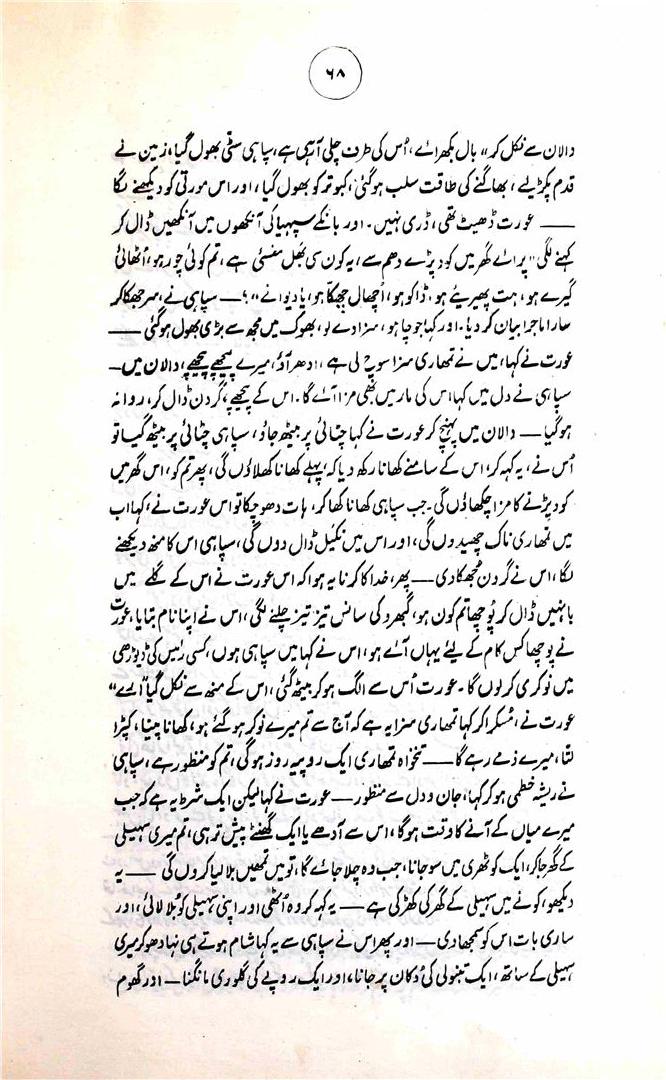 ۶۸
دالان سے نکل کر، بال بکھرائے، اُس کی طرف چلی آرہی ہے، سپاہی سٹّی بھول گیا، زمین نے
قدم پکڑ لیے، بھاگنے کی طاقت سلب ہوگئی، کبوتر کو بھول گیا، اور اس مورتی کو دیکھنے لگا
—— عورت ڈھیٹ تھی، ڈری نہیں۔ اور بانکے سپہیا کی آنکھوں میں آنکھیں ڈال کر
کہنے لگی "پرائے گھر میں کود پڑے دھم سے، یہ کون سی بھل منسئی ہے، تم کوئی چور ہو، اُٹھائی
گیرے ہو، ہت پھیریئے ہو، ڈاکو ہو، اُچھال چھکّا ہو، یا دیوانے"؟ — سپاہی نے، سر جھکا کر
سارا ماجرا بیان کر دیا۔ اور کہا جو چاہو، سزا دے لو، بھوک میں مجھ سے بڑی بھول ہوگئی ——
عورت نے کہا، میں نے تمھاری سزا سوچ لی ہے، ادھر آؤ، میرے پیچھے پیچھے، دالان میں —
سپاہی نے دل میں کہا، اس کی مار میں بھی مزا آئے گا۔ اس کے پیچھے، گردن ڈال کر، روانہ
ہوگیا — دالان میں پہنچ کر عورت نے کہا چٹائی پر بیٹھ جاؤ، سپاہی چٹائی پر بیٹھ گیا تو
اُس نے، یہ کہہ کر، اس کے سامنے کھانا رکھ دیا کہ، پہلے کھانا کھلاؤں گی، پھر تم کو، اس گھر میں
کود پڑنے کا مزا چکھاؤں گی۔ جب سپاہی کھانا کھا کر، ہات دھو چکا تو اس عورت نے، کہا اب
میں تمھاری ناک چھیدوں گی، اور اس میں نکیل ڈال دوں گی، سپاہی اس کا منھ دیکھنے
لگا، اس نے گردن جھکا دی — پھر، خدا کا کرنا یہ ہوا کہ اس عورت نے اس کے گلے میں
بانہیں ڈال کر پوچھا تم کون ہو، گبھرو کی سانس تیز تیز چلنے لگی، اس نے اپنا نام بتایا، عورت
نے پوچھا کس کام کے لیئے یہاں آئے ہو، اس نے کہا میں سپاہی ہوں، کسی رئیس کی ڈیوڑھی
میں نوکری کر لوں گا۔ عورت اُس سے الگ ہو کر بیٹھ گئی، اس کے منھ سے نکل گیا "اے"
عورت نے، مُسکرا کر کہا تمھاری سزا یہ ہے کہ آج سے تم میرے نوکر ہو گئے ہو، کھانا پینا، کپڑا
لتّا، میرے ذمے رہے گا — تنخواہ تمھاری ایک روپیہ روز ہوگی، تم کو منظور ہے، سپاہی
نے ریشہ خطمی ہو کر کہا، جان و دل سے منظور — عورت نے کہا لیکن ایک شرط یہ ہے کہ جب
میرے میاں کے آنے کا وقت ہوگا، اس سے آدھے یا ایک گھنٹے پیش تر ہی، تم میری سہیلی
کے گھر جا کر، ایک کوٹھری میں سو جانا، جب وہ چلا جائے گا، تو میں تمھیں بلا لیا کروں گی — یہ
دیکھو، کونے میں سہیلی کے گھر کی کھڑکی ہے — یہ کہہ کر وہ اُٹھی اور اپنی سہیلی کو بُلا لائی، اور
ساری بات اس کو سمجھا دی — اور پھر اس نے سپاہی سے یہ کہا شام ہوتے ہی نہا دھو کر میری
سہیلی کے ساتھ، ایک تنبولی کی دُکان پر جانا، اور ایک روپے کی گلوری مانگنا — اور گھوم